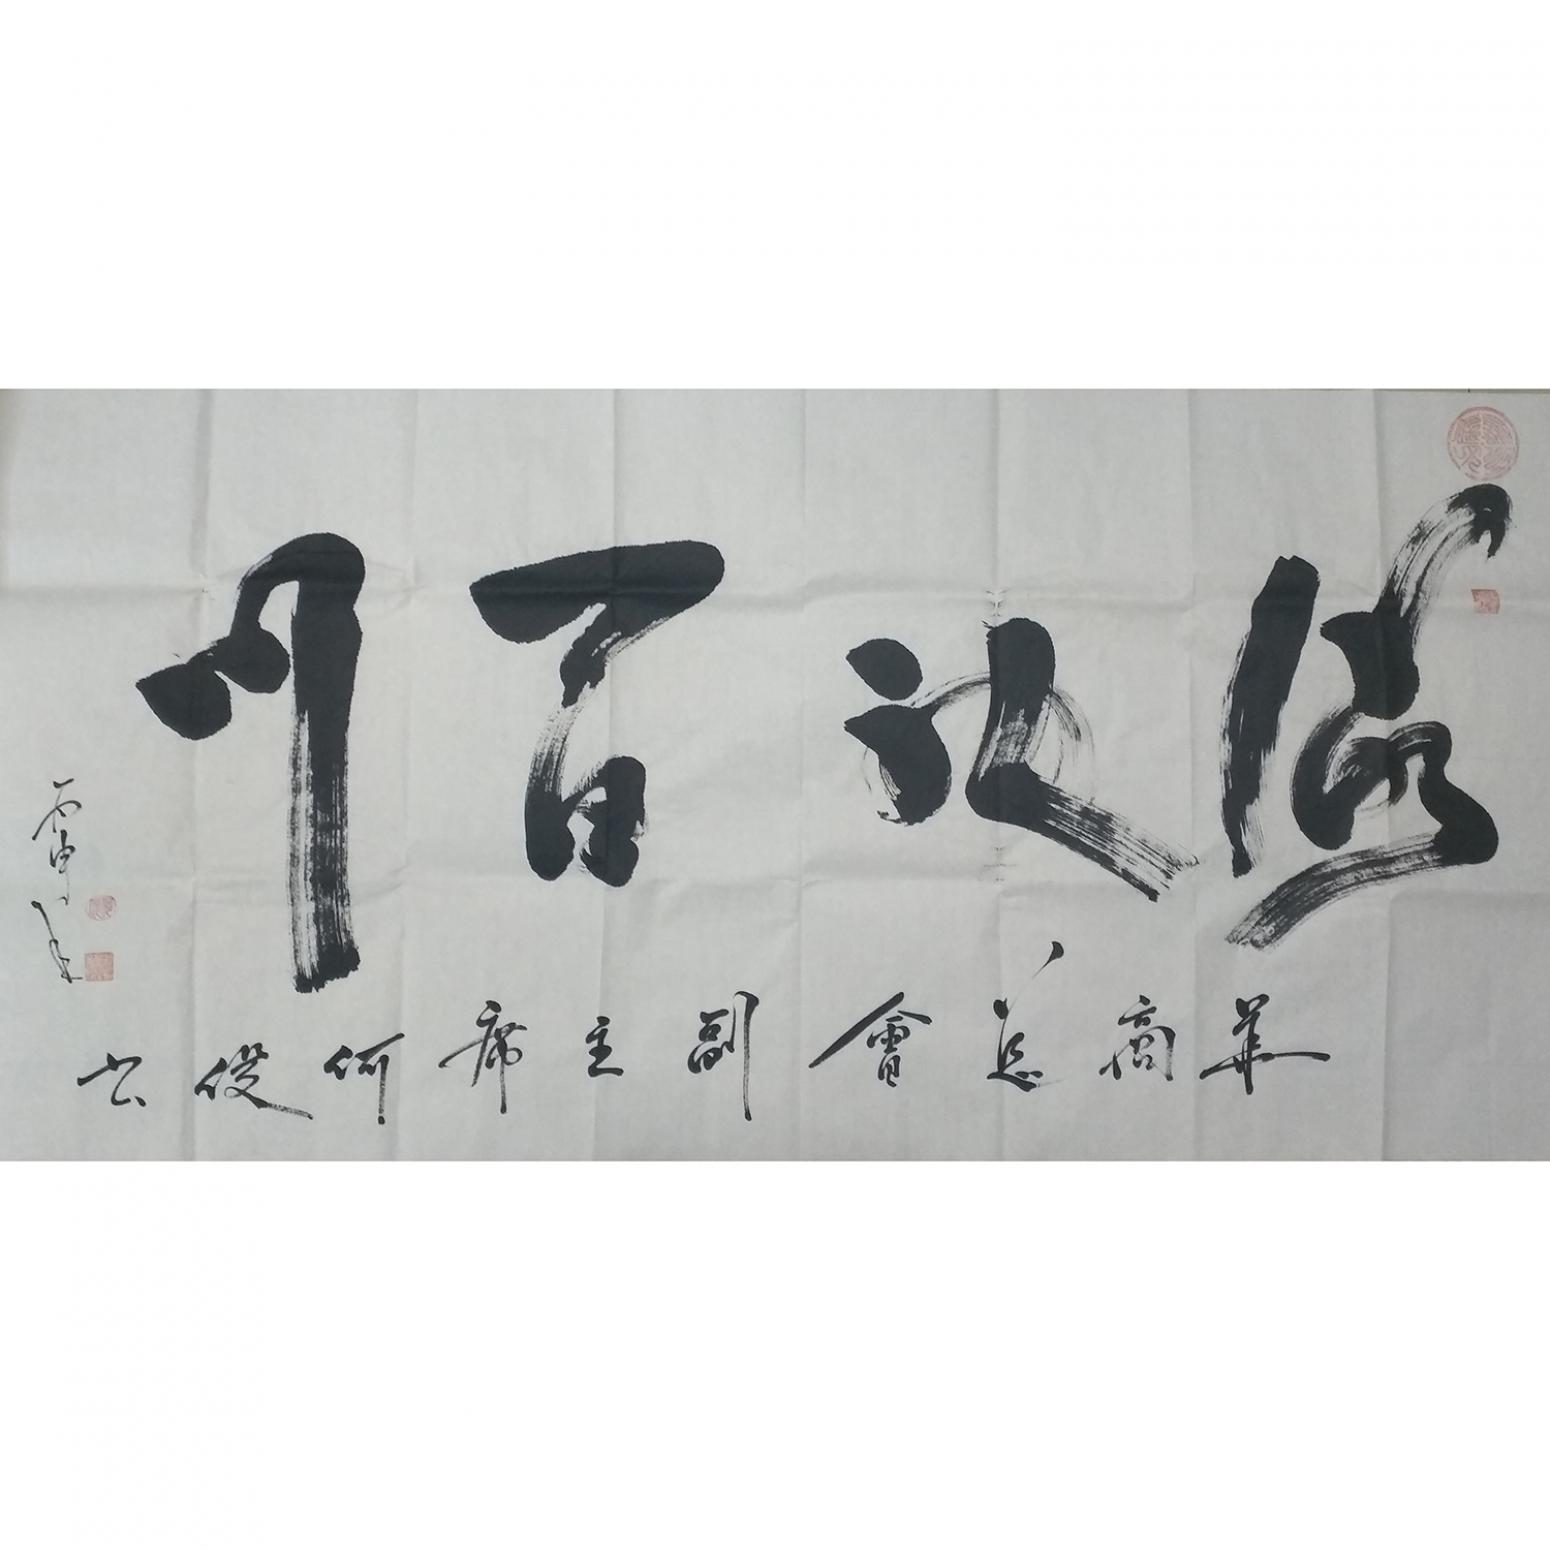 海納百川
華商總會副主席何俊書